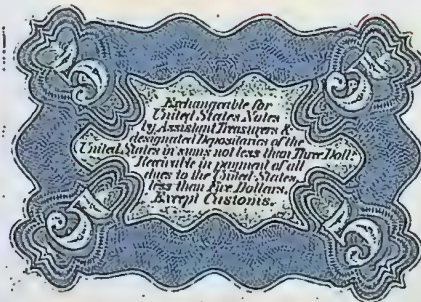 Exchangeable for
United States Notes
by Assistant Treasurers &
designated Depositaries of the
United States in sums not less than Three Doll?
Receivable in payment of all
dues to the United States,
less than Five Dollars,
Except Customs.